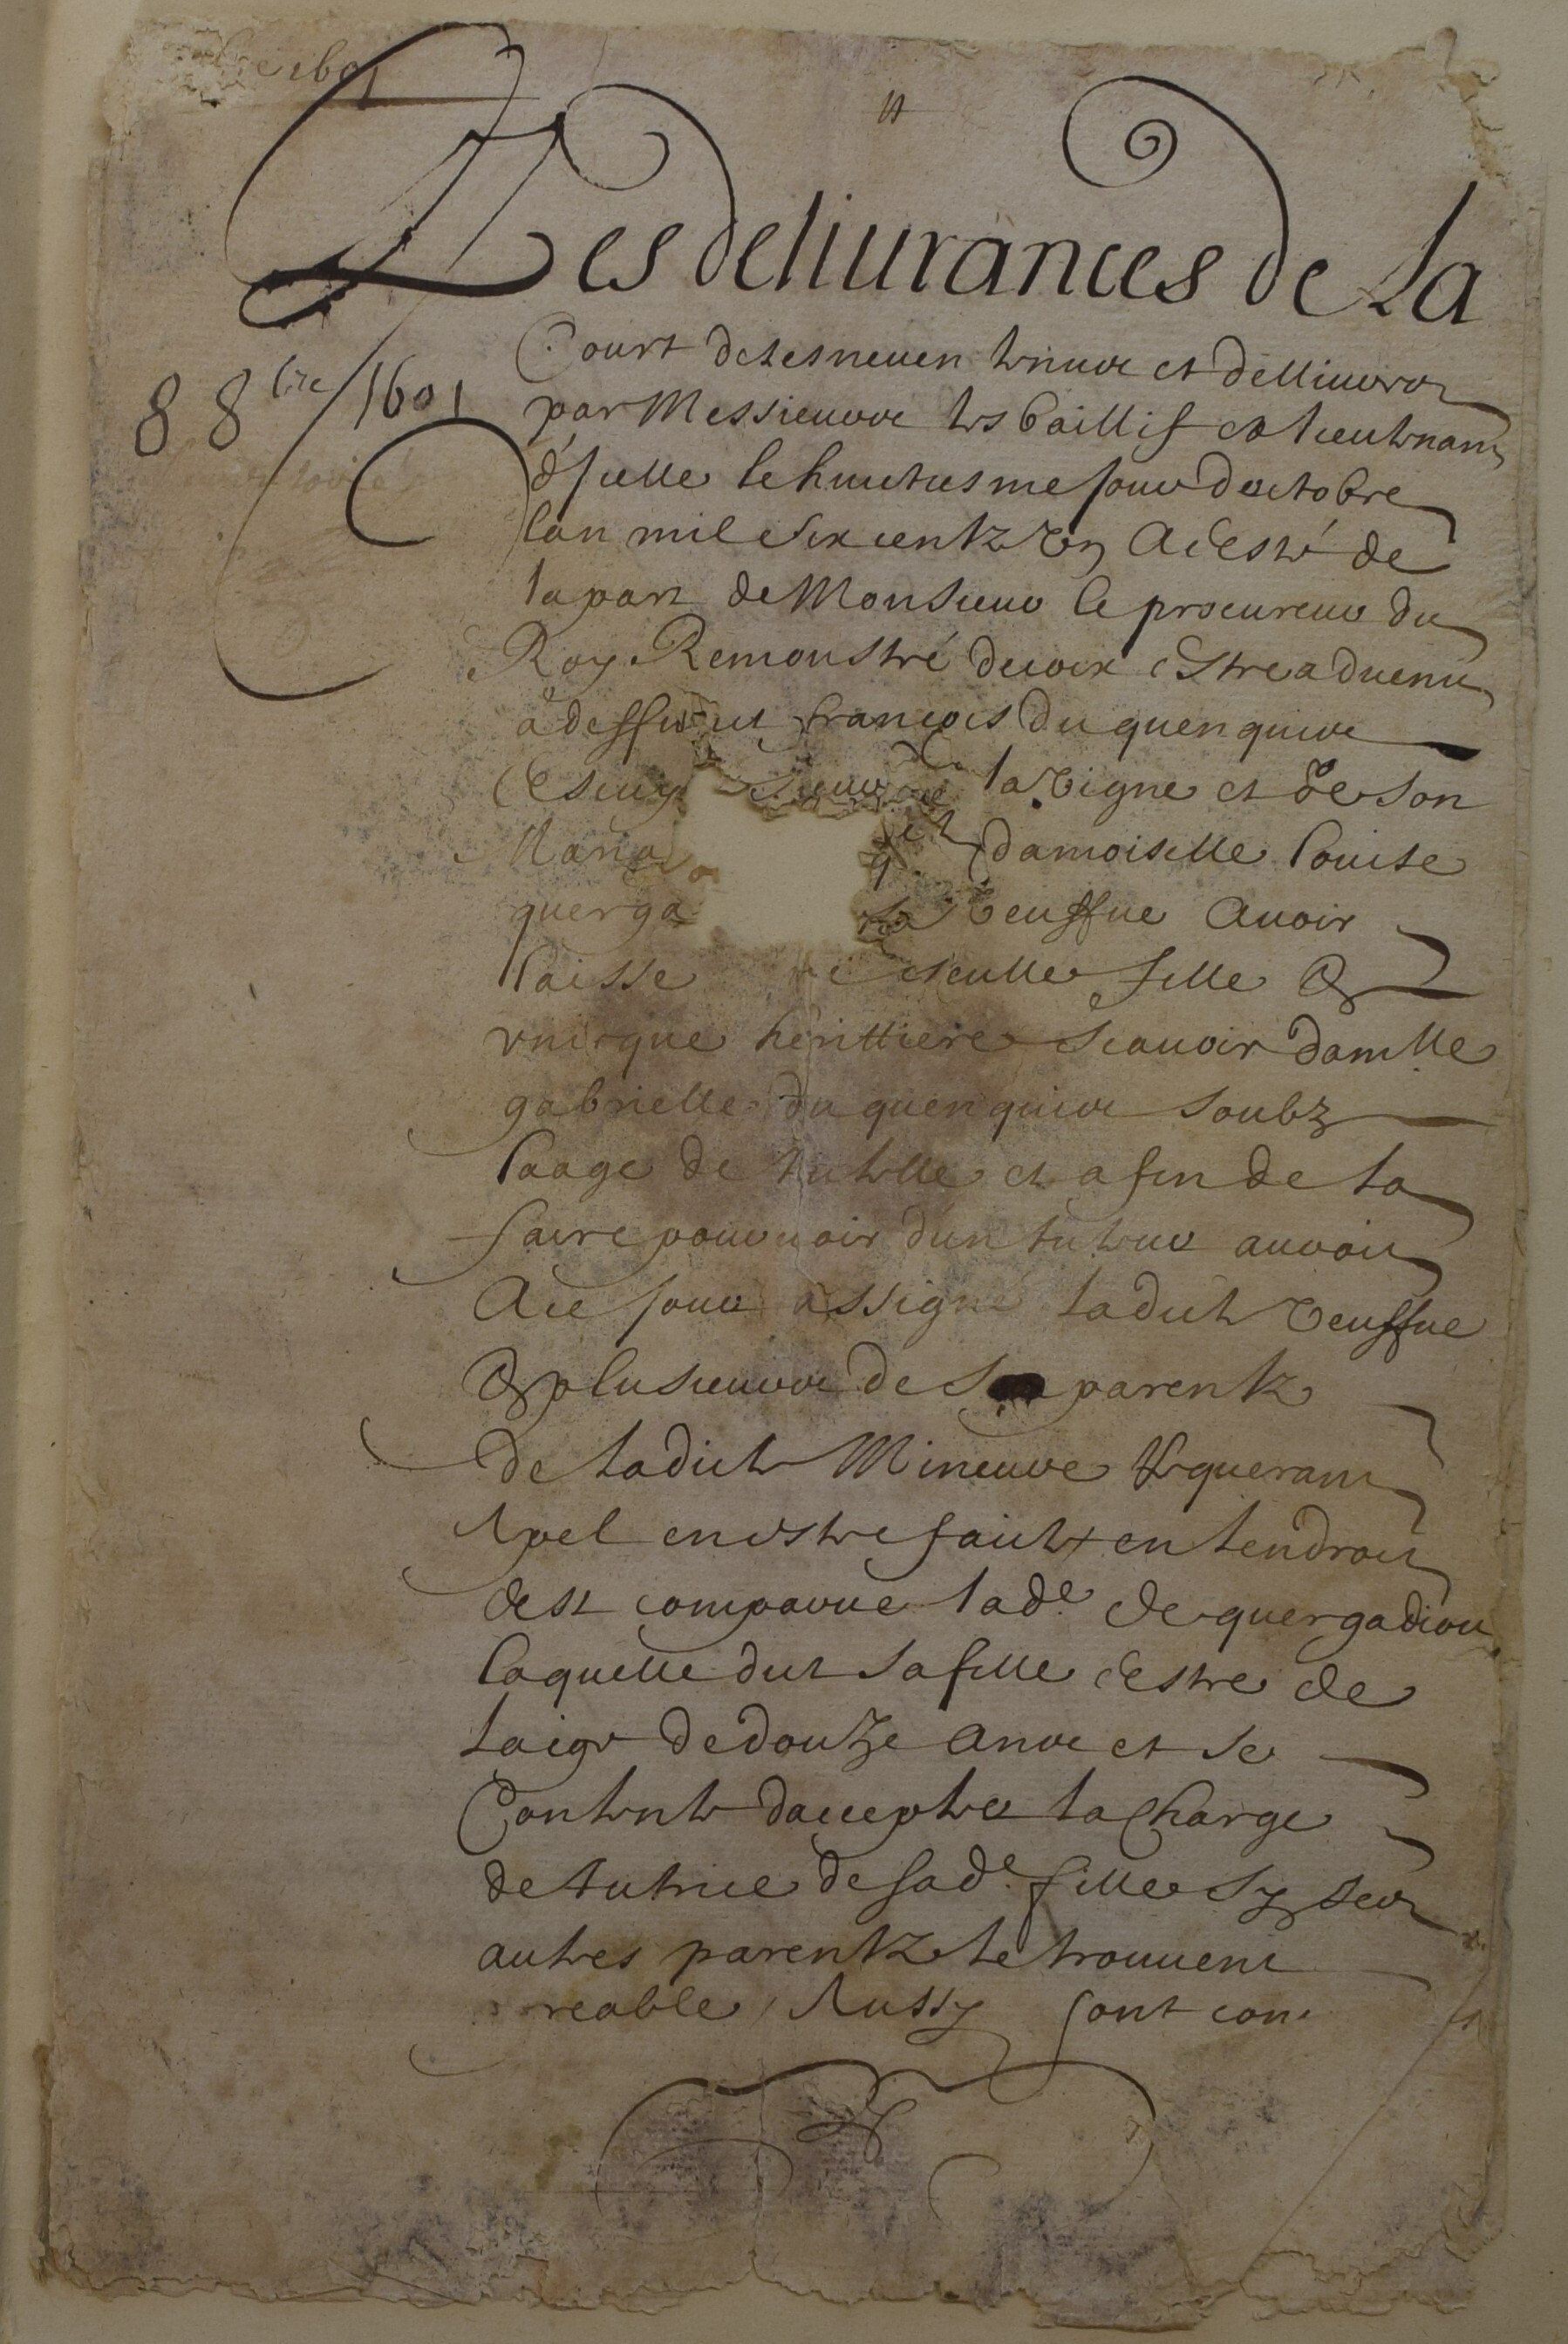 1601
Les deliurances de La
Court de Lesneuen tenue et dellivrez
8 8bre 1601
par Messieurs les baillif et lieutenant
d'Icelle le huictiesme jour doctobre
lan mil six centz Vn A esté de
la part de Monsieur le procureur du
Roy Remonstré decoix estre aduenu
a deffunct francois du quenquis
Escuyer sieur de la Vigne et de son
Maria damoiselle Louise
querga sa Veuffue Auoir
laisse seulle fille &
vnicque herittiere scauoir damlle
gabrielle du quenquis soubz
laage de tutelle et afin de la
faire pouruoir dun tuteur auoir
A ce jour assigné ladicte Veuffue
& plusieurs de parentz
de ladicte Mineure Requerant
Apel en estre faict en lendroit
Est comparue lade de quergadiou
laquelle dict sa fille estre de
laige de douze Ans et se
Contente daccepter la Charge
de tutrice de sade fille sy les
autres parentz le trouuent
reable, Aussy sont com